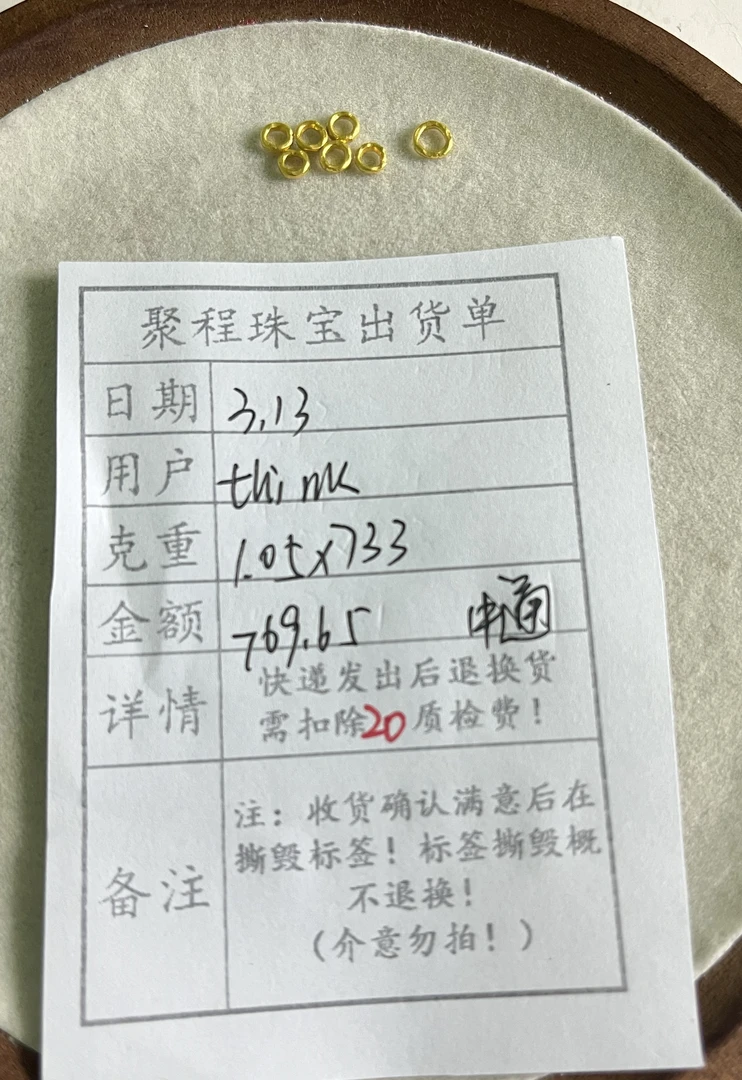 聚程珠宝出货单
日期 3.13
用户 think
克重 1.05x733
金额 769.65 中通
详情 快递发出后退换货
需扣除20质检费！
备注 注：收货确认满意后在
撕毁标签！标签撕毁概
不退换！
（介意勿拍！）